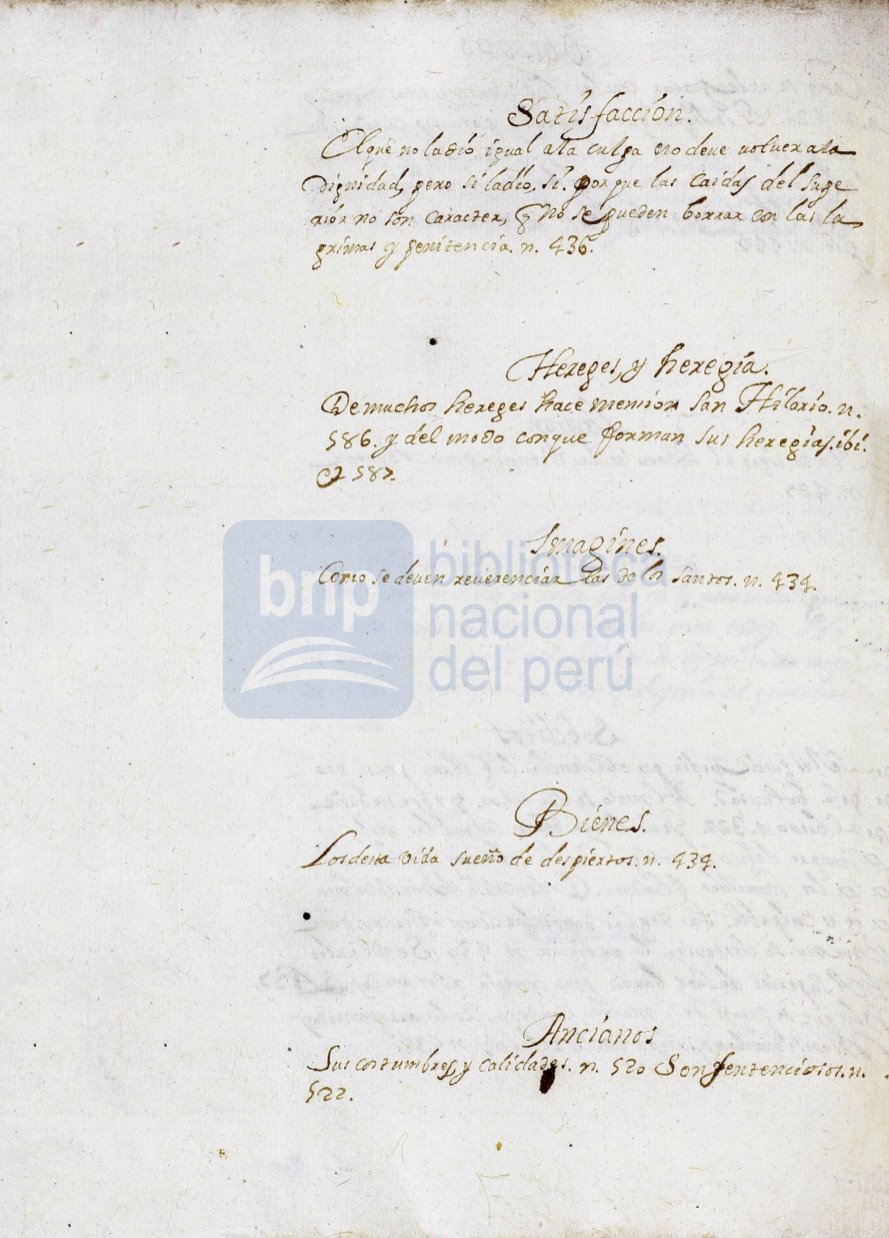 Satisfaccion.
El que no la dio igual a la culpa no deve volver a la
Dignidad, pero si la dio, si. porque las caidas del supe
rior no son caracter, q no se pueden borrar con las la
grimas y penitencia. n. 436.
Hereges, y heregia.
De muchos hereges hace mension San Hilario. n.
586. y del modo conque forman sus heregias. ibi.
et 587.
Imagines.
Como se deven reverenciar las de los santos. n. 434.
bnp biblioteca
nacional
del perú
Bienes.
Los desta vida sueño de despiertos. n. 434.
Ancianos
Sus costumbres, y calidades. n. 520 Son sentenciosos. n.
522.